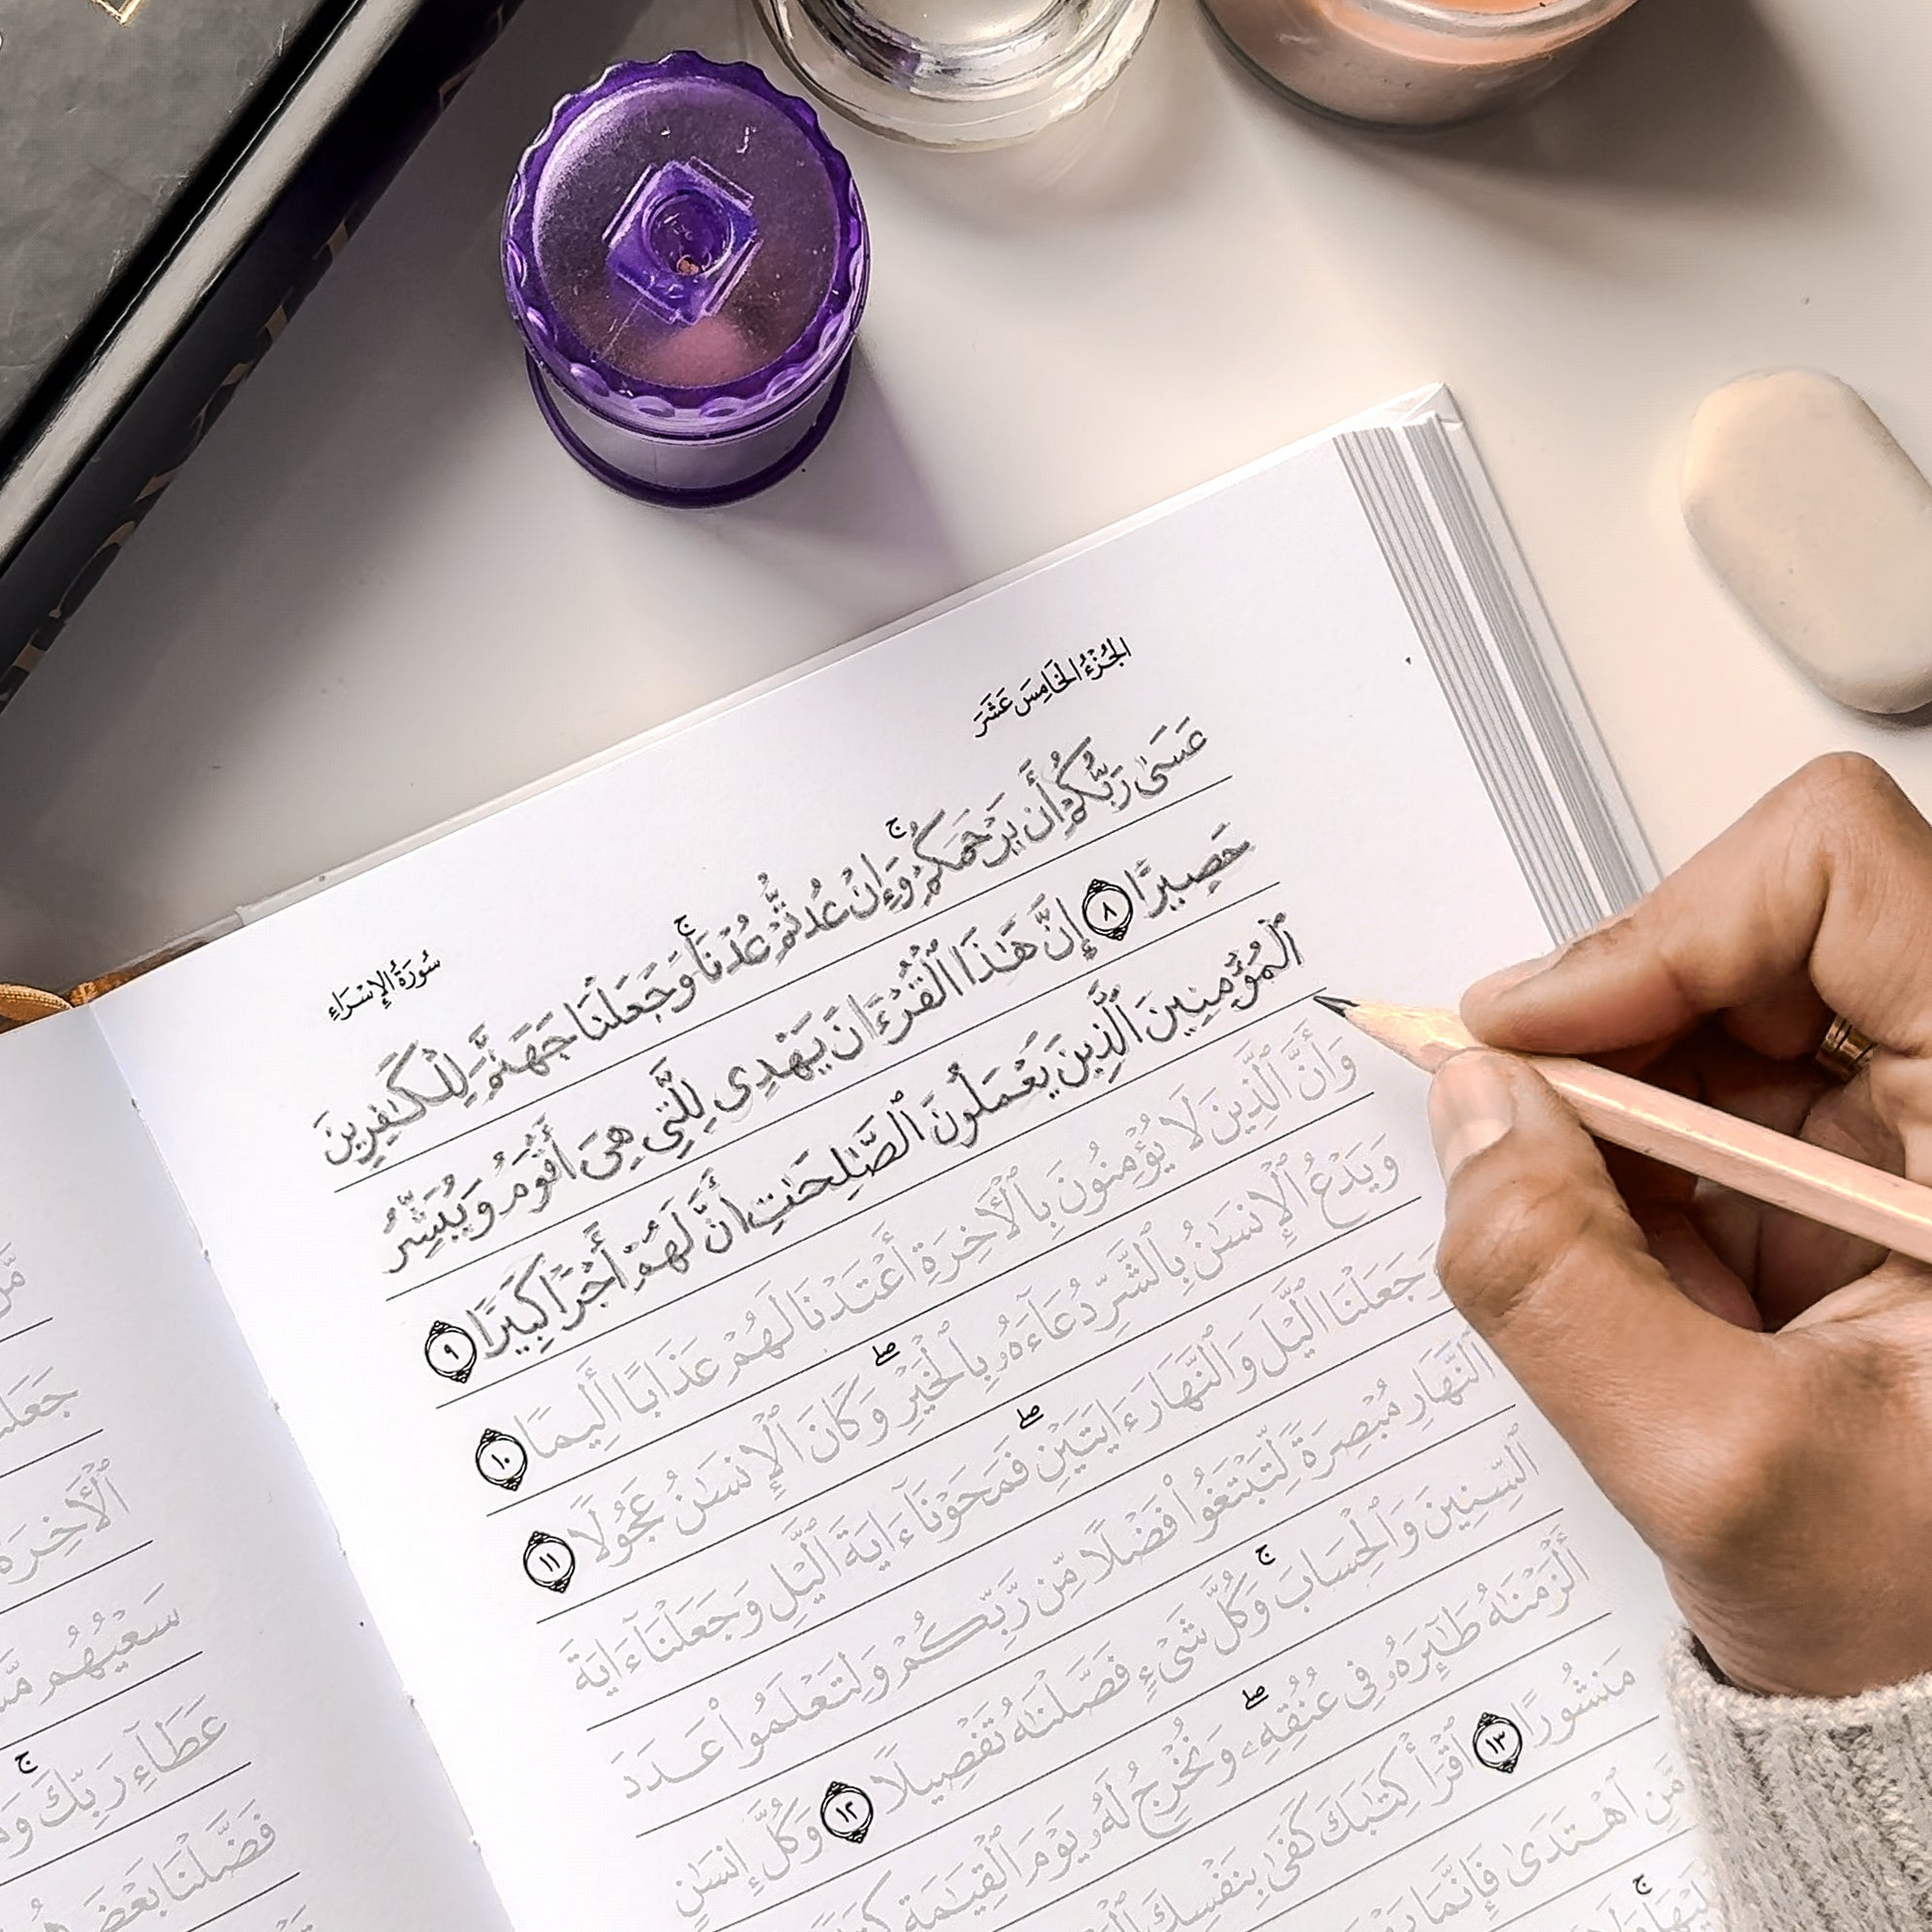 الجُزْءُ الخَامِسَ عَشَرَ
سُورَةُ الإِسْرَاءِ
عَسَىٰ رَبُّكُمْ أَن يَرْحَمَكُمْ ۚ وَإِنْ عُدتُّمْ عُدْنَا ۘ وَجَعَلْنَا جَهَنَّمَ لِلْكَٰفِرِينَ
حَصِيرًا ٨ إِنَّ هَٰذَا ٱلْقُرْءَانَ يَهْدِى لِلَّتِى هِىَ أَقْوَمُ وَيُبَشِّرُ
ٱلْمُؤْمِنِينَ ٱلَّذِينَ يَعْمَلُونَ ٱلصَّٰلِحَٰتِ أَنَّ لَهُمْ أَجْرًا كَبِيرًا ٩
وَأَنَّ ٱلَّذِينَ لَا يُؤْمِنُونَ بِٱلْأَخِرَةِ أَعْتَدْنَا لَهُمْ عَذَابًا أَلِيمًا ١٠
وَيَدْعُ ٱلْإِنسَٰنُ بِٱلشَّرِّ دُعَآءَهُۥ بِٱلْخَيْرِ ۖ وَكَانَ ٱلْإِنسَٰنُ عَجُولًا ١١
وَجَعَلْنَا ٱلَّيْلَ وَٱلنَّهَارَ ءَايَتَيْنِ ۖ فَمَحَوْنَآ ءَايَةَ ٱلَّيْلِ وَجَعَلْنَآ ءَايَةَ
ٱلنَّهَارِ مُبْصِرَةً لِّتَبْتَغُوا۟ فَضْلًا مِّن رَّبِّكُمْ وَلِتَعْلَمُوا۟ عَدَدَ
ٱلسِّنِينَ وَٱلْحِسَابَ ۚ وَكُلَّ شَىْءٍ فَصَّلْنَٰهُ تَفْصِيلًا ١٢ وَكُلَّ إِنسَٰنٍ
أَلْزَمْنَٰهُ طَٰٓئِرَهُۥ فِى عُنُقِهِۦ ۖ وَنُخْرِجُ لَهُۥ يَوْمَ ٱلْقِيَٰمَةِ
مَنشُورًا ١٣ ٱقْرَأْ كِتَٰبَكَ كَفَىٰ بِنَفْسِكَ
مَّنِ ٱهْتَدَىٰ فَإِنَّمَا
جَعَلْنَا
ٱلْأَخِرَةَ
سَعْيُهُم
عَطَآءِ رَبِّكَ ۚ
فَضَّلْنَا بَعْضَ